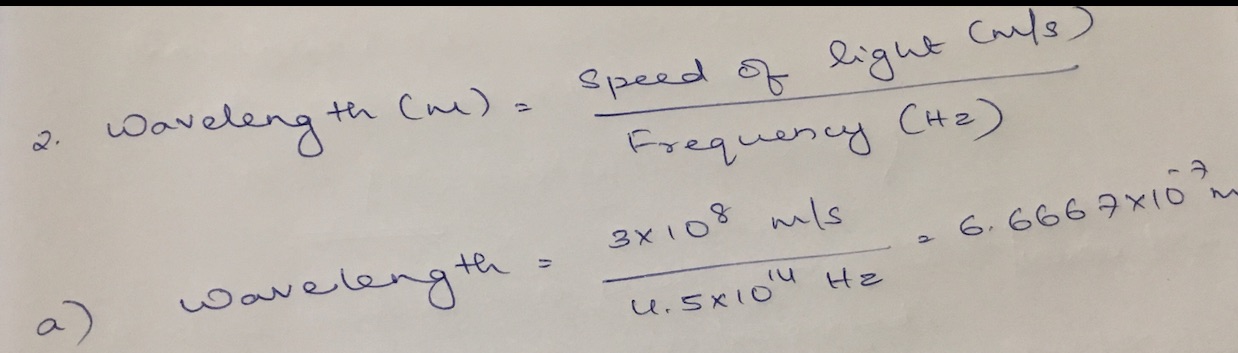 2. Wavelength (m) = Speed of light (m/s) / Frequency (Hz)
a) Wavelength = 3×10⁸ m/s / 4.5×10¹⁴ Hz = 6.6667×10⁻⁷ m